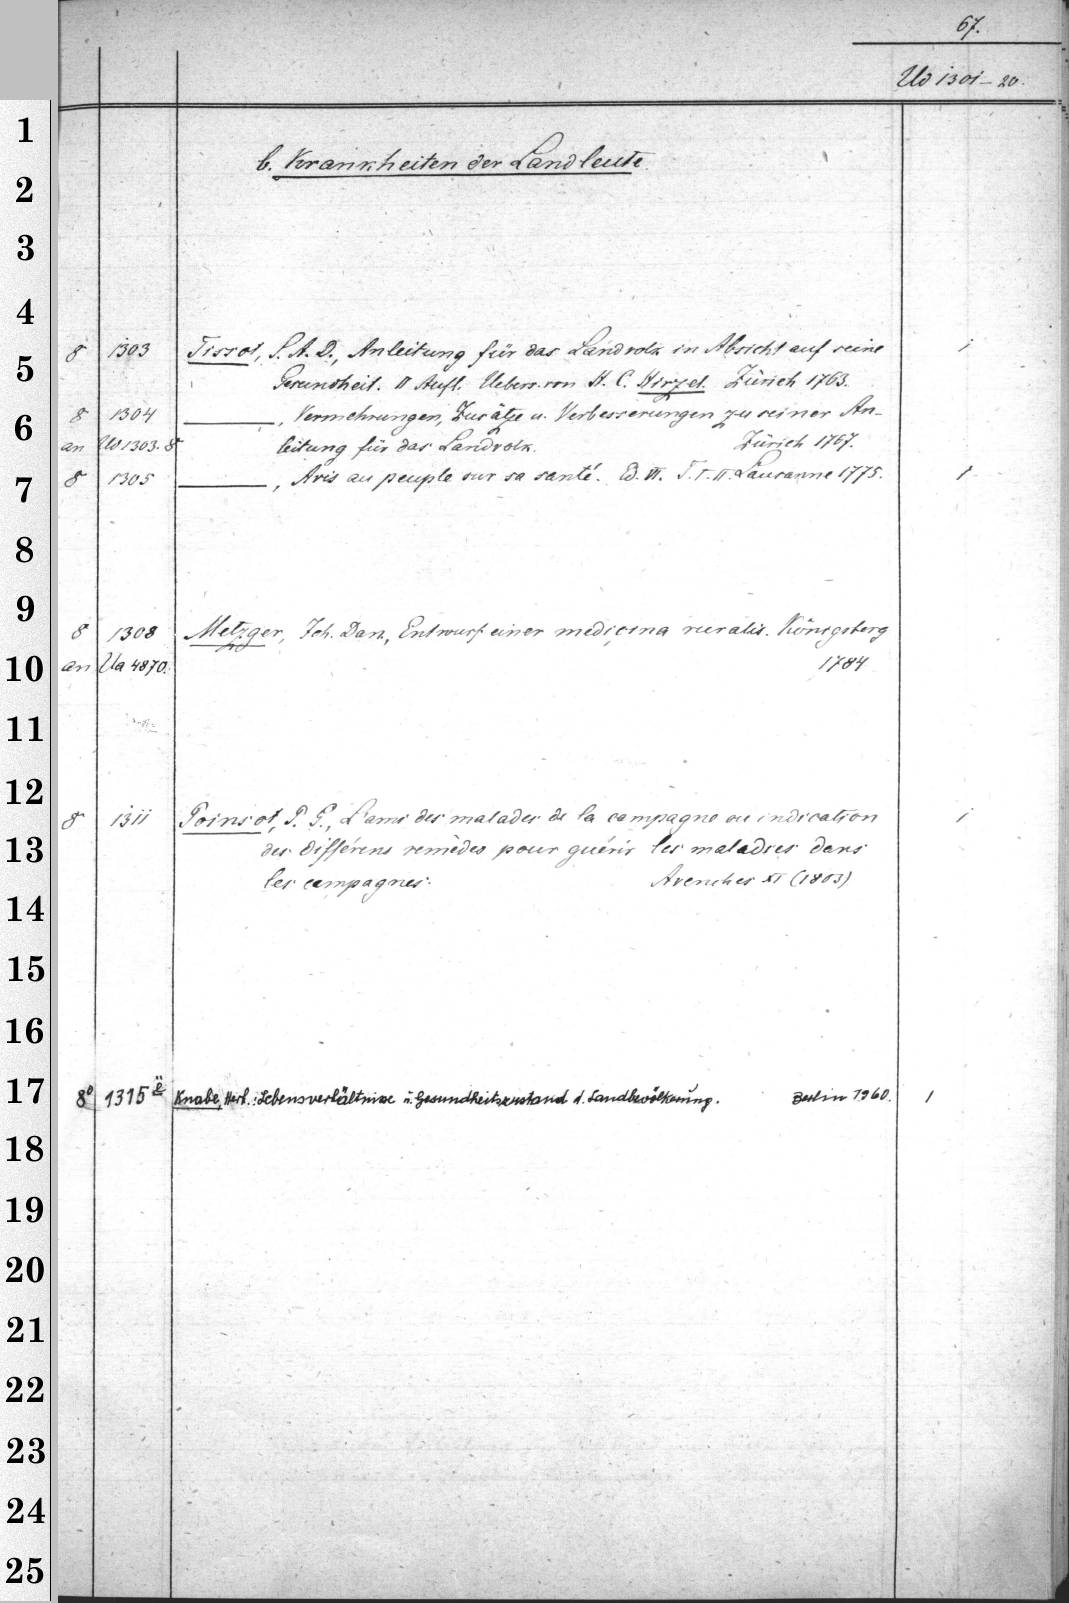 67.
Ud 1301-20.
1
b. Krankheiten der Landleute.
2
3
4
8 1303 Tissot, S. A. D., Anleitung für das Landvolk in Absicht auf seine 1
5
Gesundheit. II Aufl. Uebers. von H. C. Hirzel. Zürich 1763.
8 1304 ———, Vermehrungen, Zusätze u. Verbesserungen zu seiner An-
6
an Ud 1303. 8 leitung für das Landvolk. Zürich 1767.
8 1305 ———, Avis au peuple sur sa santé. Ed. VII. T. I. II. Lausanne 1775. 1
7
8
9
8 1308 Metzger, Joh. Dan., Entwurf einer medicina ruralis. Königsberg
10
an Ua 4870. 1784
11
12
8 1311 Poinsot, P. G., L'ami des malades de la campagne ou indication 1
13
des différens remèdes pour guérir les maladies dans
les campagnes. Avenches XI (1803)
14
15
16
17
8° 1315 e Knabe, Herb.: Lebensverhältnisse u. Gesundheitszustand d. Landbevölkerung. Berlin 1960. 1
18
19
20
21
22
23
24
25